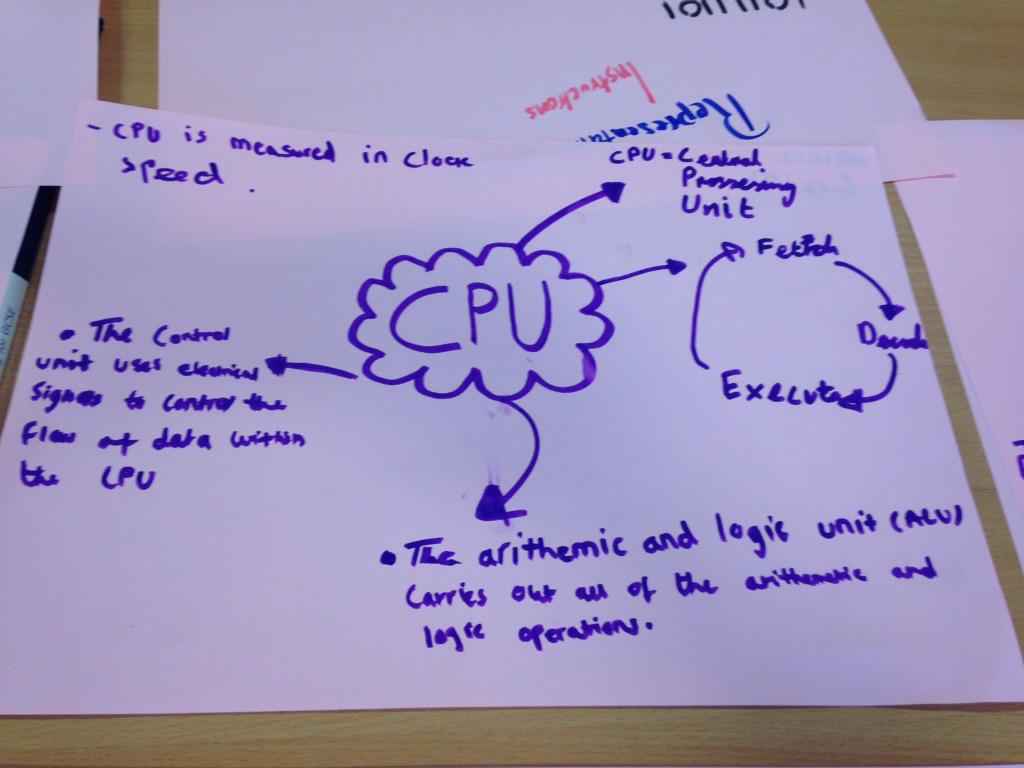 Instructions
- CPU is measured in Clock
speed .
CPU = Central
Prossesing
Unit
CPU
Fetch
Decode
Execute
• The Control
unit uses electrical
Signals to control the
flow of data within
the CPU
• The arithemic and logic unit (ALU)
Carries out all of the arithemetic and
logic operations.